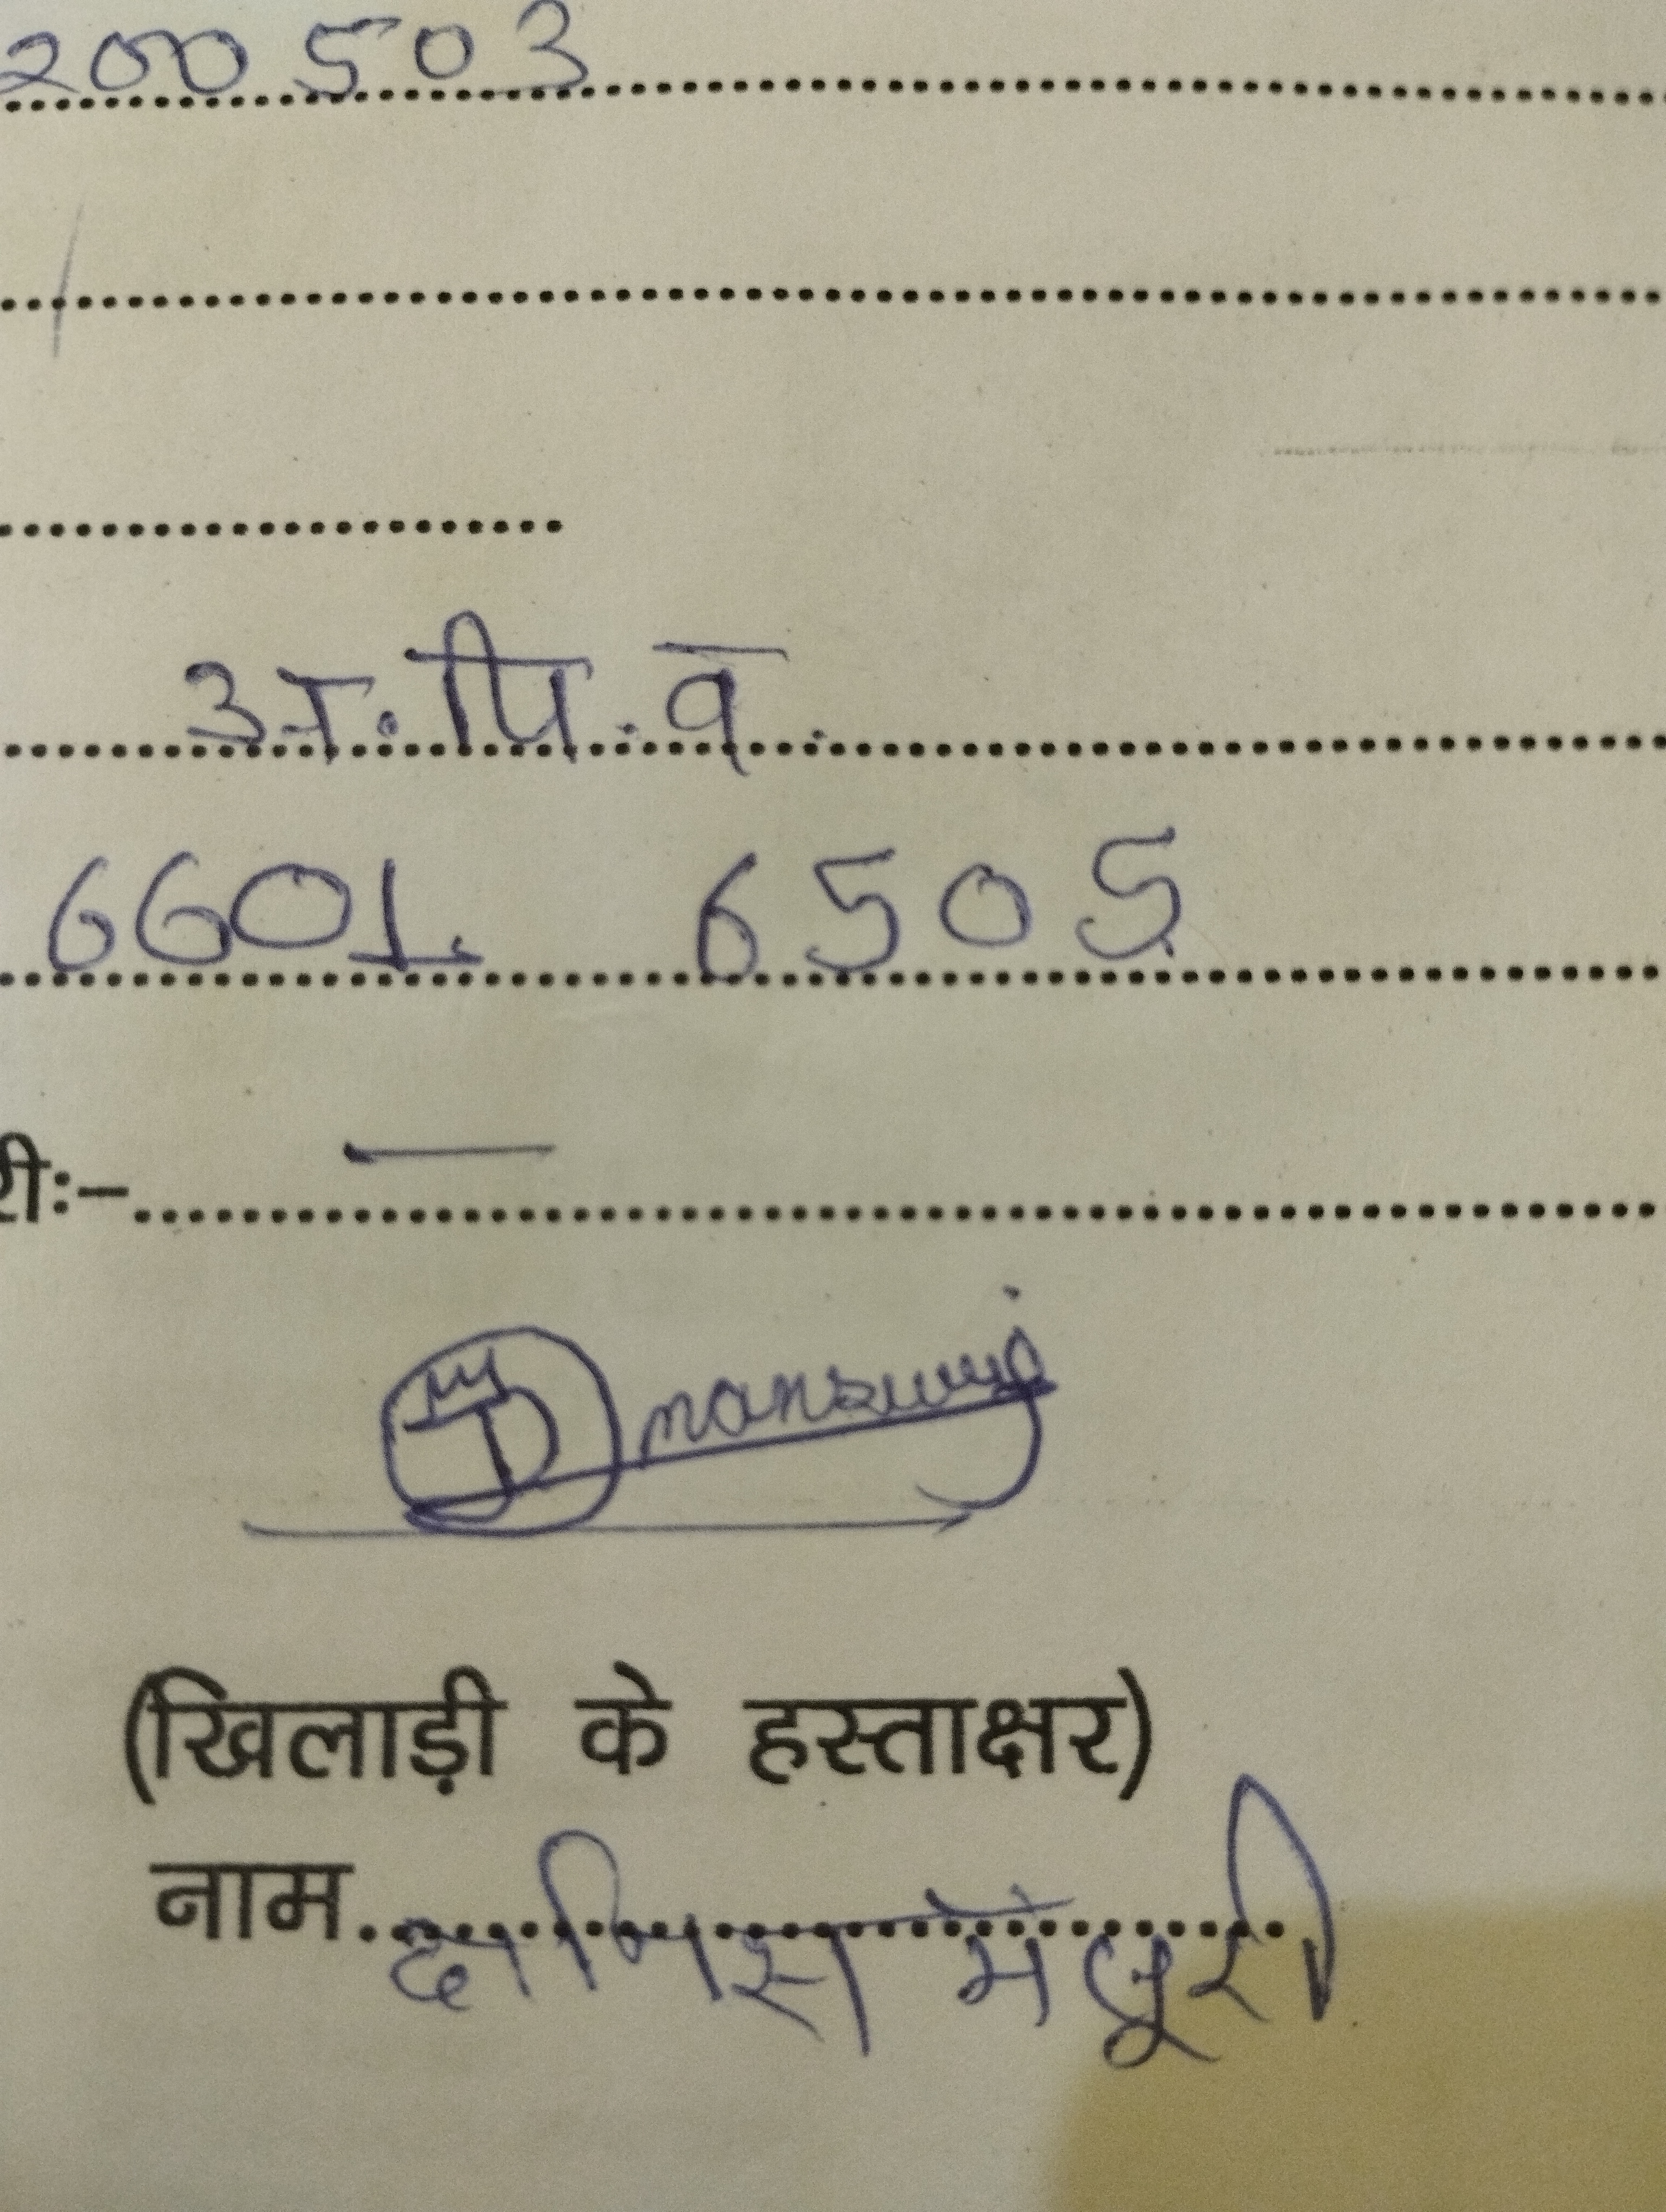 200503
अ.पि.व.
6601 6505
री:-
(खिलाड़ी के हस्ताक्षर)
नाम दानिस मंसूरी